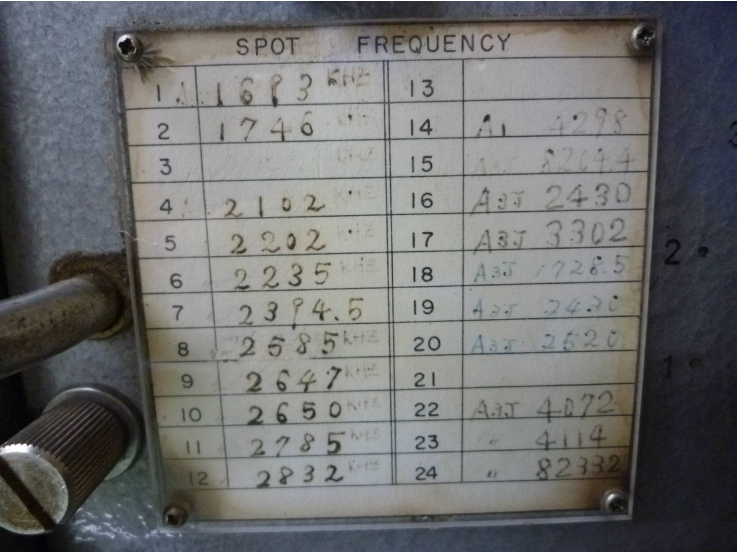 SPOT FREQUENCY
1 1683 KHZ
2 1746 KHZ
3 KHZ
4 2102 KHZ
5 2202 KHZ
6 2235 KHZ
7 2394.5
8 2585 KHZ
9 2647 KHZ
10 2650 KHZ
11 2785 KHZ
12 2832 KHZ
13
14 A1 4298
15 A3J
16 A3J 2430
17 A3J 3302
18 A3J 1728.5
19 A3J
20 A3J 2520
21
22 A3J 4072
23 " 4114
24 " 82332
2
1